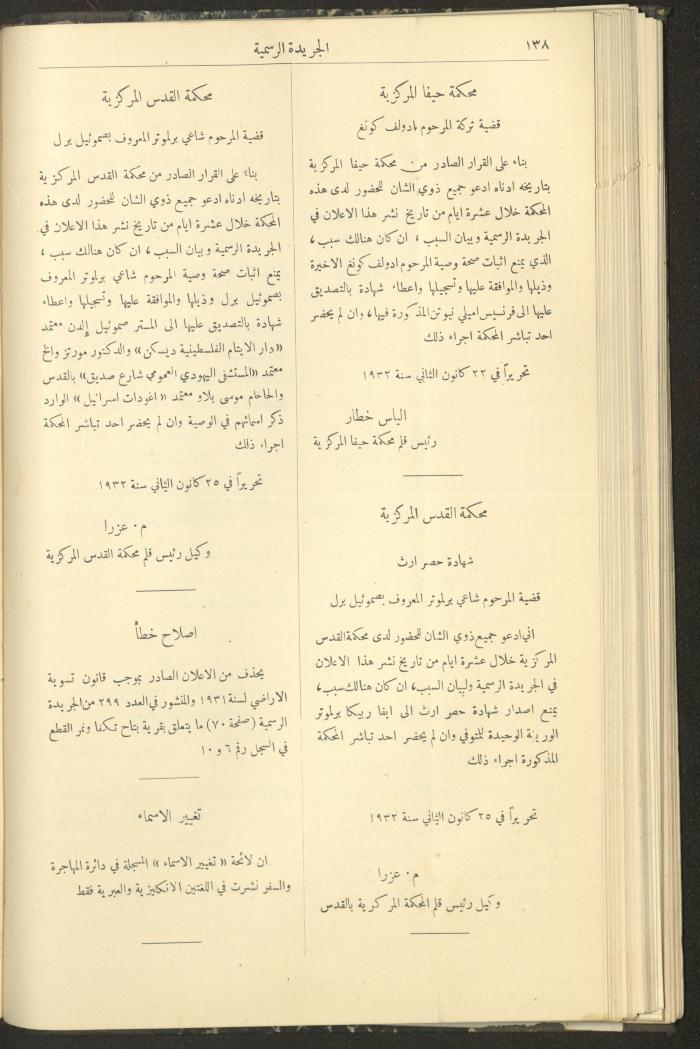 ١٣٨
الجريدة الرسمية
محكمة حيفا المركزية
قضية تركة المرحوم ادولف كونغ
بناء على القرار الصادر من محكمة حيفا المركزية
بتاريخه ادناه ادعو جميع ذوي الشان للحضور لدى هذه
المحكمة خلال عشرة ايام من تاريخ نشر هذا الاعلان في
الجريدة الرسمية وبيان السبب ، ان كان هنالك سبب ،
الذي يمنع اثبات صحة وصية المرحوم ادولف كونغ الاخيرة
وذيلها والموافقة عليها وتسجيلها واعطاء شهادة بالتصديق
عليها الى فرنسيس اميلي نيوتن المذكورة فيها، وان لم يحضر
احد تباشر المحكمة اجراء ذلك
تحريراً في ٢٢ كانون الثاني سنة ١٩٣٢
الياس خطار
رئيس قلم محكمة حيفا المركزية
محكمة القدس المركزية
شهادة حصر ارث
قضية المرحوم شاعي برلموتر المعروف بصموئيل برل
اني ادعو جميع ذوي الشان للحضور لدى محكمة القدس
المركزية خلال عشرة ايام من تاريخ نشر هذا الاعلان
في الجريدة الرسمية ولبيان السبب، ان كان هنالك سبب،
يمنع اصدار شهادة حصر ارث الى ايفا ريبكا برلموتر
الوريثة الوحيدة للمتوفي وان لم يحضر احد تباشر المحكمة
المذكورة اجراء ذلك
تحريراً في ٢٥ كانون الثاني سنة ١٩٣٢
م . عزرا
وكيل رئيس قلم المحكمة المركزية بالقدس
محكمة القدس المركزية
قضية المرحوم شاعي برلموتر المعروف بصموئيل برل
بناء على القرار الصادر من محكمة القدس المركزية
بتاريخه ادناه ادعو جميع ذوي الشان للحضور لدى هذه
المحكمة خلال عشرة ايام من تاريخ نشر هذا الاعلان في
الجريدة الرسمية وبيان السبب ، ان كان هنالك سبب ،
يمنع اثبات صحة وصية المرحوم شاعي برلموتر المعروف
بصموئيل برل وذيلها والموافقة عليها وتسجيلها واعطاء
شهادة بالتصديق عليها الى المستر صموئيل إلدن معتمد
«دار الايتام الفلسطينية ديسكن» والدكتور مورتز والخ
معتمد «المستشفى اليهودي العمومي شارع صديق» بالقدس
والحاخام موسى بلاو معتمد « اغودات اسرائيل » الوارد
ذكر اسمائهم في الوصية وان لم يحضر احد تباشر المحكمة
اجراء ذلك
تحريراً في ٢٥ كانون الثاني سنة ١٩٣٢
م . عزرا
وكيل رئيس قلم محكمة القدس المركزية
اصلاح خطأ
يحذف من الاعلان الصادر بموجب قانون تسوية
الاراضي لسنة ١٩٣١ والمنشور في العدد ٢٩٩ من الجريدة
الرسمية (صفحة ٧٠) ما يتعلق بقرية بتاح تكفا ونمر القطع
في السجل رقم ٦ و ١٠
تغيير الاسماء
ان لائحة « تغيير الاسماء » المسجلة في دائرة المهاجرة
والسفر نشرت في اللغتين الانكليزية والعبرية فقط